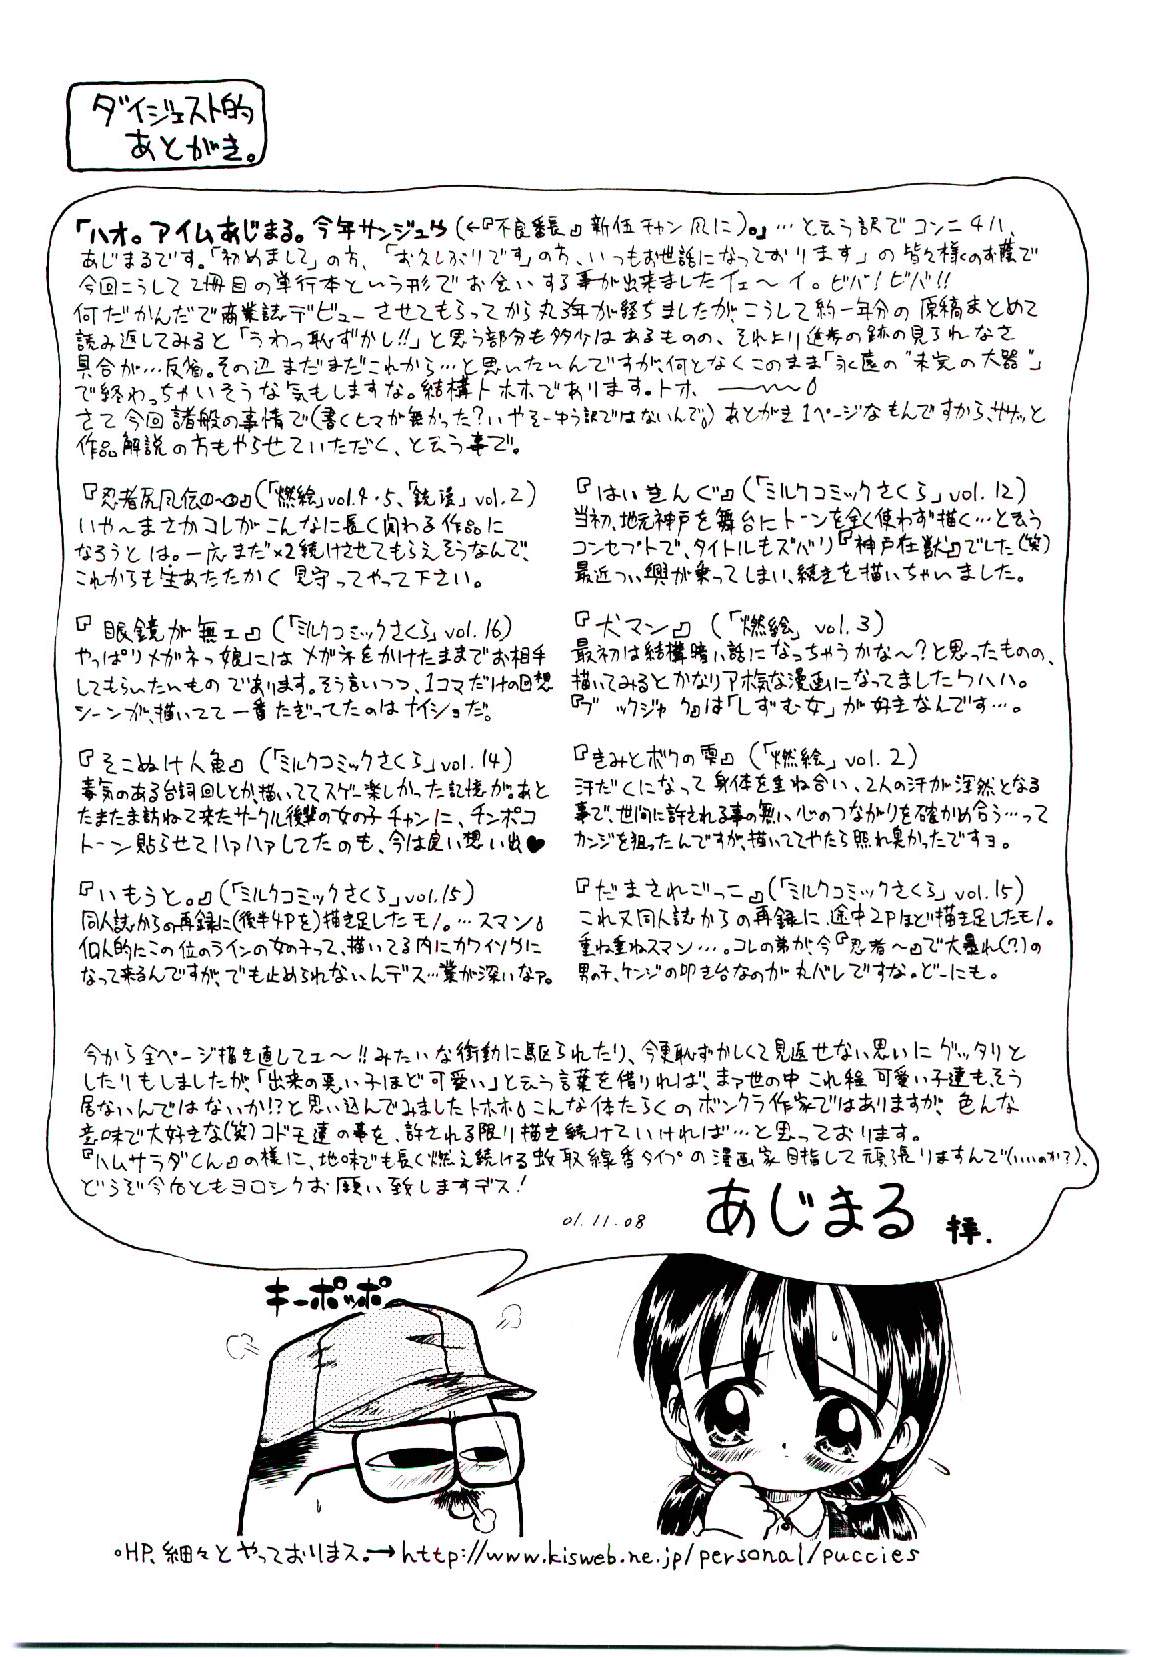 ダイジェスト的
あとがき。
「ハオ。アイムあじまる。今年サンジュウ(←『不良番長』新伍チャン風に)。」…と云う訳でコンニチハ、
あじまるです。「初めまして」の方、「お久しぶりです」の方、いつもお世話になっております」の皆々様のお蔭で
今回こうして2冊目の単行本という形でお会いする事が出来ましたイェ〜イ。ビバ!ビバ!!
何だかんだで商業誌デビューさせてもらってから丸3年が経ちましたが、こうして約一年分の原稿まとめて
読み返してみると「うわっ恥ずかし!!」と思う部分も多少はあるものの、それより進歩の跡の見られなさ
具合が…反省。その辺まだまだこれから…と思いたいんですが、何となくこのまま「永遠の"未完の大器"」
で終わっちゃいそうな気もしますな。結構トホホであります。トホ
さて今回諸般の事情で(書くヒマが無かった?いやそーゆう訳ではないんで。)あとがき1ページなもんですから、ササッと
作品解説の方もやらせていただく、と云う事で。
『忍者尻風伝①〜③』(「燃絵」vol.4・5、「銃漫」vol.2)
いや〜まさかコレがこんなに長く関わる作品に
なろうとは。一応まだ×2続けさせてもらえそうなんで、
これからも生あたたかく見守ってやって下さい。
『眼鏡が無ェ』(「ミルクコミックさくら」vol.16)
やっぱりメガネっ娘にはメガネをかけたままでお相手
してもらいたいものであります。そう言いつつ、1コマだけの回想
シーンが、描いてて一番たぎってたのはナイショだ。
『そこぬけ人魚』(「ミルクコミックさくら」vol.14)
毒気のある台詞回しとか、描いててスゲー楽しかった記憶が。あと
たまたま訪ねて来たサークル後輩の女の子チャンに、チンポコ
トーン貼らせてハァハァしてたのも、今は良い想い出♥
『いもうと。』(「ミルクコミックさくら」vol.15)
同人誌からの再録に(後半4Pを)描き足したモノ。…スマン。
個人的にこの位のラインの女の子って、描いてる内にカワイソウに
なって来るんですが、でも止められないんデス…業が深いなァ。
『はいきんぐ』(「ミルクコミックさくら」vol.12)
当初、地元神戸を舞台にトーンを全く使わず描く…と云う
コンセプトで、タイトルもズバリ『神戸在獣』でした(笑)
最近つい興が乗ってしまい、続きを描いちゃいました。
『犬マン』(「燃絵」vol.3)
最初は結構暗い話になっちゃうかな〜?と思ったものの、
描いてみるとかなりアホ気な漫画になってましたウハハ。
『ブックジャク』は「しずむ女」が好きなんです…。
『きみとボクの雫』(「燃絵」vol.2)
汗だくになって身体を重ね合い、2人の汗が渾然となる
事で、世間に許される事の無い心のつながりを確かめ合う…って
カンジを狙ったんですが、描いててやたら照れ臭かったですヨ。
『だまされごっこ』(「ミルクコミックさくら」vol.15)
これ又同人誌からの再録に、途中2Pほど描き足したモノ。
重ね重ねスマン…。コレの弟が、今『忍者〜』で大暴れ(?)の
男の子、ケンジの叩き台なのが丸バレですな。どーにも。
今から全ページ描き直してェ〜!!みたいな衝動に駆られたり、今更恥ずかしくて見返せない思いにゲッタリと
したりもしましたが、「出来の悪い子ほど可愛い」と云う言葉を借りれば、まァ世の中これ程可愛い子達も、そう
居ないんではないか!?と思い込んでみましたトホホ。こんな体たらくのボンクラ作家ではありますが、色んな
意味で大好きな(笑)コドモ達の事を、許される限り描き続けていければ…と思っております。
『ハムサラダくん』の様に、地味でも長く燃え続ける蚊取線香タイプの漫画家目指して頑張りますんで(いいのか?)、
どうぞ今后ともヨロシクお願い致しますデス!
01.11.08
あじまる 拝.
キーポッポ
○HP、細々とやっておりまス。→http://www.kisweb.ne.jp/personal/puccies